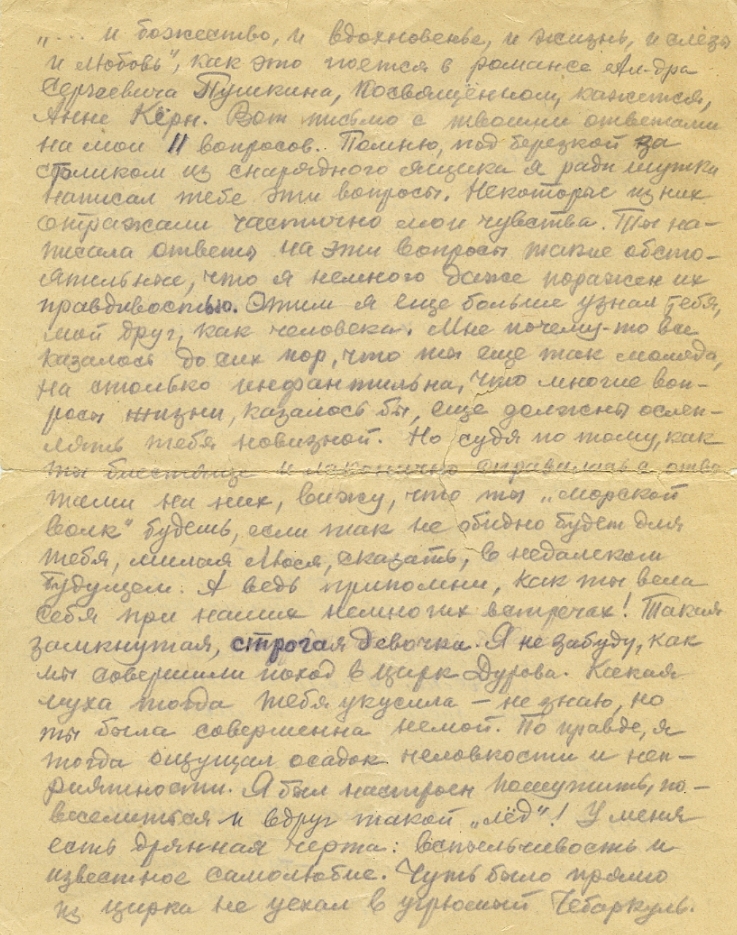 „... и божество, и вдохновенье, и жизнь, и слёзы
и любовь", как это поётся в романсе Ал-дра
Сергеевича Пушкина, посвящённом, кажется,
Анне Керн. Вот письмо с твоими ответами
на мои 11 вопросов. Помню, под березкой за
столиком из снарядного ящика я ради шутки
написал тебе эти вопросы. Некоторые из них
отражали частично мои чувства. Ты на-
писала ответы на эти вопросы такие обсто-
ятельные, что я немного даже поражен их
правдивостью. Этим я еще больше узнал тебя,
мой друг, как человека. Мне почему-то все
казалось до сих пор, что ты еще так молода,
на столько инфантильна, что многие воп-
росы жизни, казалось бы, еще должны ослеп-
лять тебя новизной. Но судя по тому, как
ты блестяще и лаконично справилась с отве
тами на них, вижу, что ты „морской
волк" будешь, если так не обидно будет для
тебя, милая Люся, сказать, в недалеком
будущем. А ведь припомни, как ты вела
себя при наших немногих встречах! Такая
замкнутая, строгая девочка. Я не забуду, как
мы совершили поход в цирк Дурова. Какая
муха тогда тебя укусила – не знаю, но
ты была совершенна немой. По правде, я
тогда ощущал осадок неловкости и неп-
риятности. Я был настроен пошутить, по-
веселиться и вдруг такой „лёд"! У меня
есть дрянная черта: вспыльчивость и
известное самолюбие. Чуть было прямо
из цирка не уехал в угрюмый Чебаркуль.